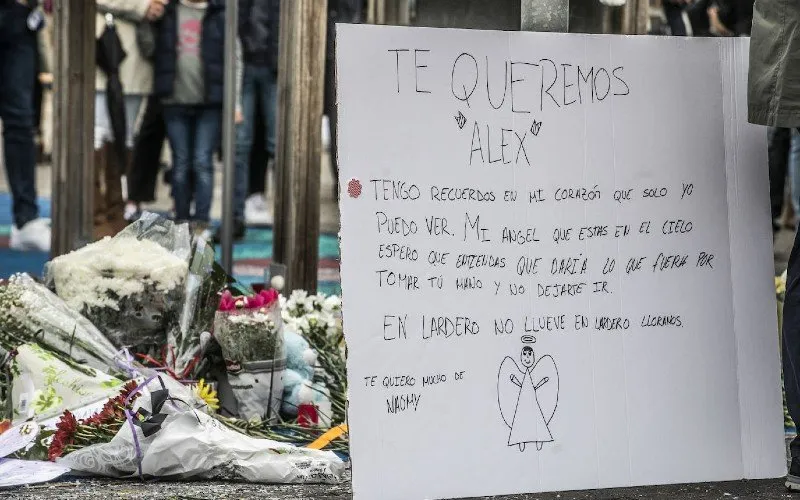 TE QUEREMOS
"ALEX"
TENGO RECUERDOS EN MI CORAZÓN QUE SOLO YO
PUEDO VER. MI ANGEL QUE ESTAS EN EL CIELO
ESPERO QUE ENTIENDAS QUE DARÍA LO QUE FUERA POR
TOMAR TÚ MANO Y NO DEJARTE IR.
EN LARDERO NO LLUEVE EN LARDERO LLORAMOS.
TE QUIERO MUCHO DE
NAOMY